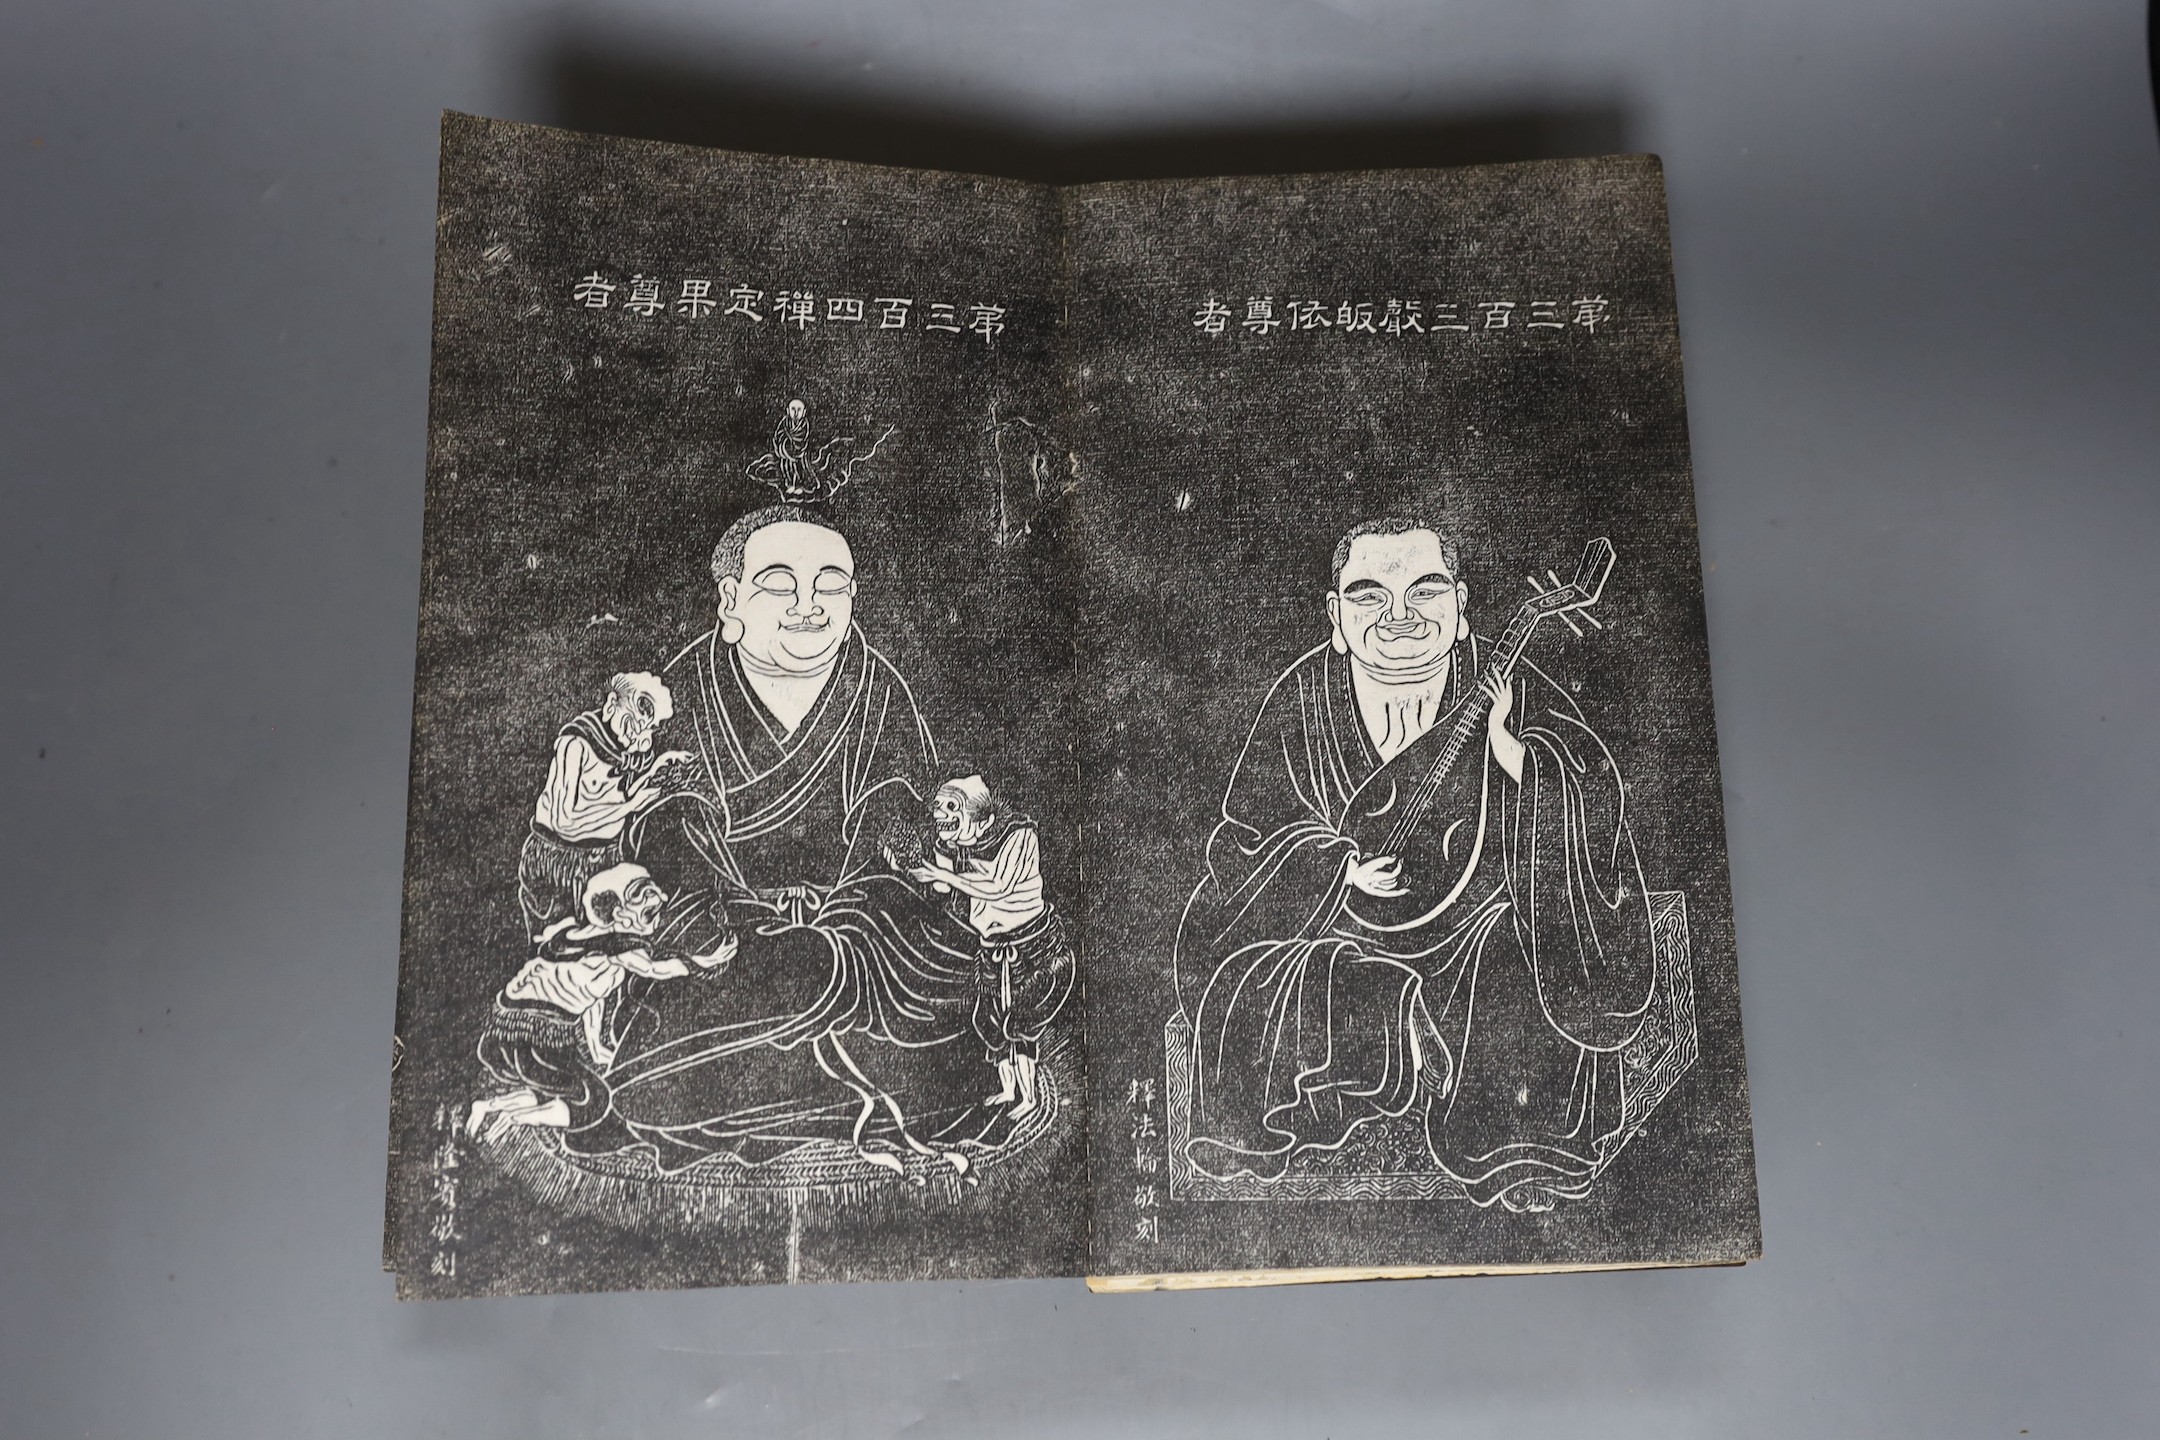 第三百三聲皈依尊者
釋法敬刻
第三百四禪定果尊者
釋敬刻